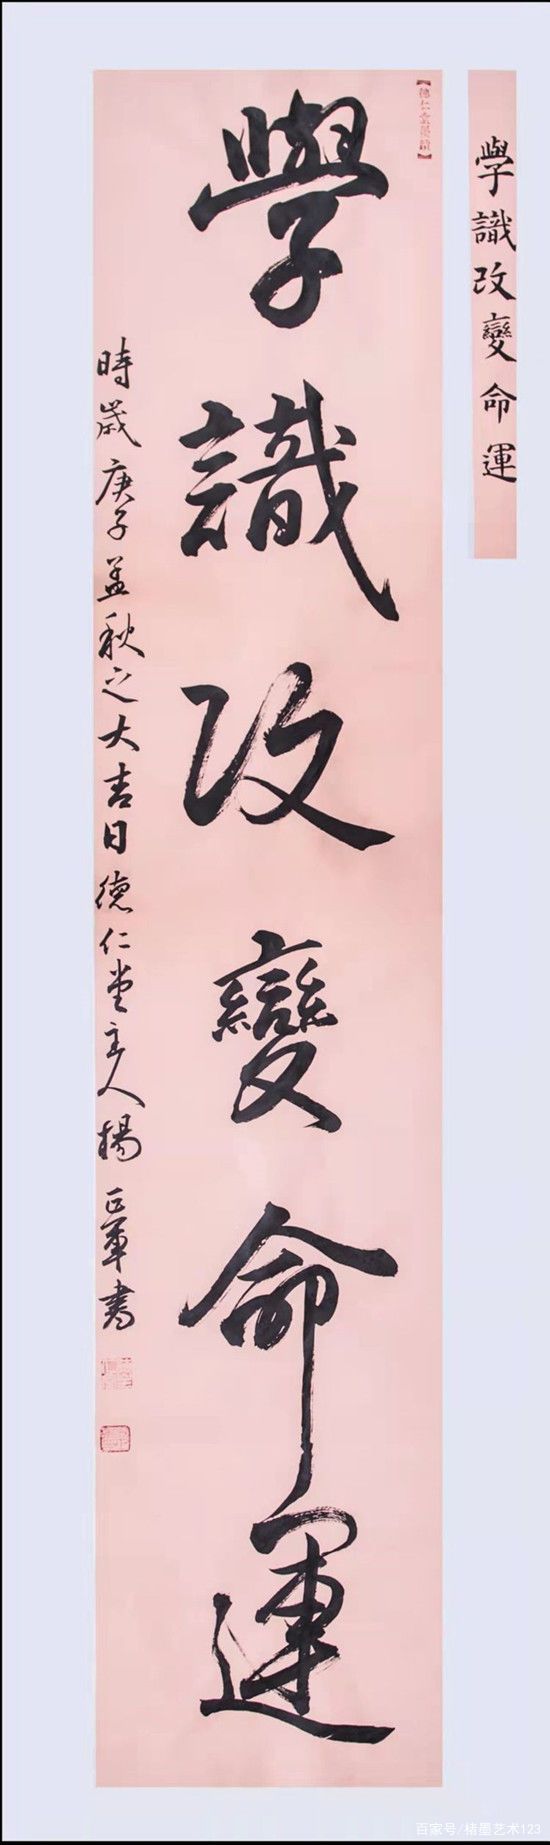 學識改變命運
【德仁堂墨韻】
學識改變命運
時歲庚子孟秋之大吉日德仁堂主人楊正軍書
百家号/楮墨艺术123